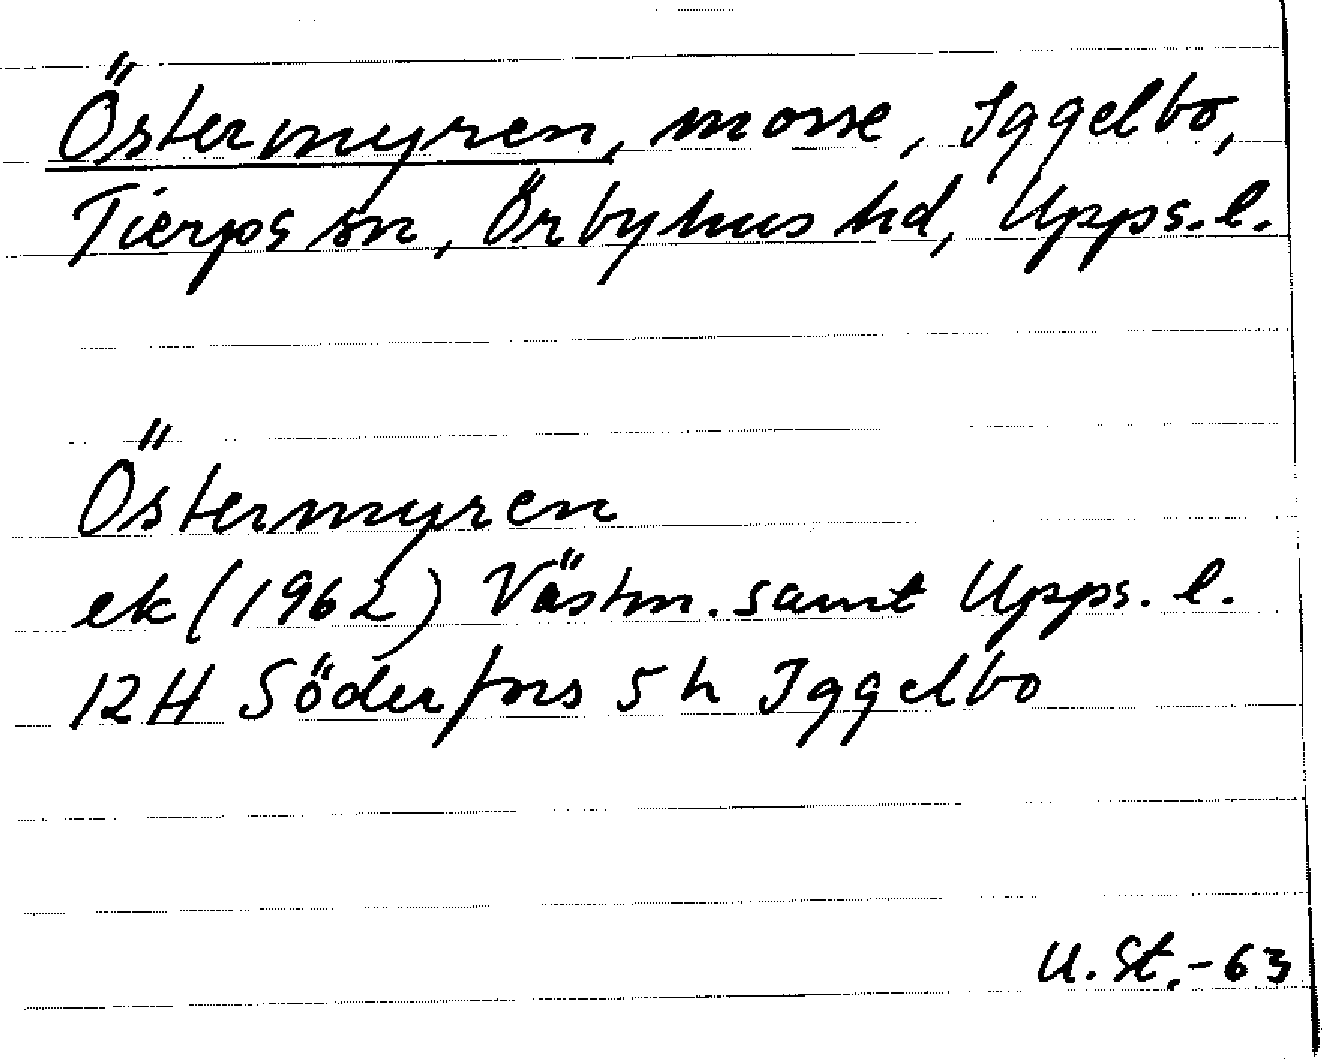 Östermyren, mosse, Iggelbo,
Tierps sn, Örbyhus hd, Upps. l.
Östermyren
ek (1962) Västm. samt Upps. l.
12H Söderfors 5h Iggelbo
U. St. -63